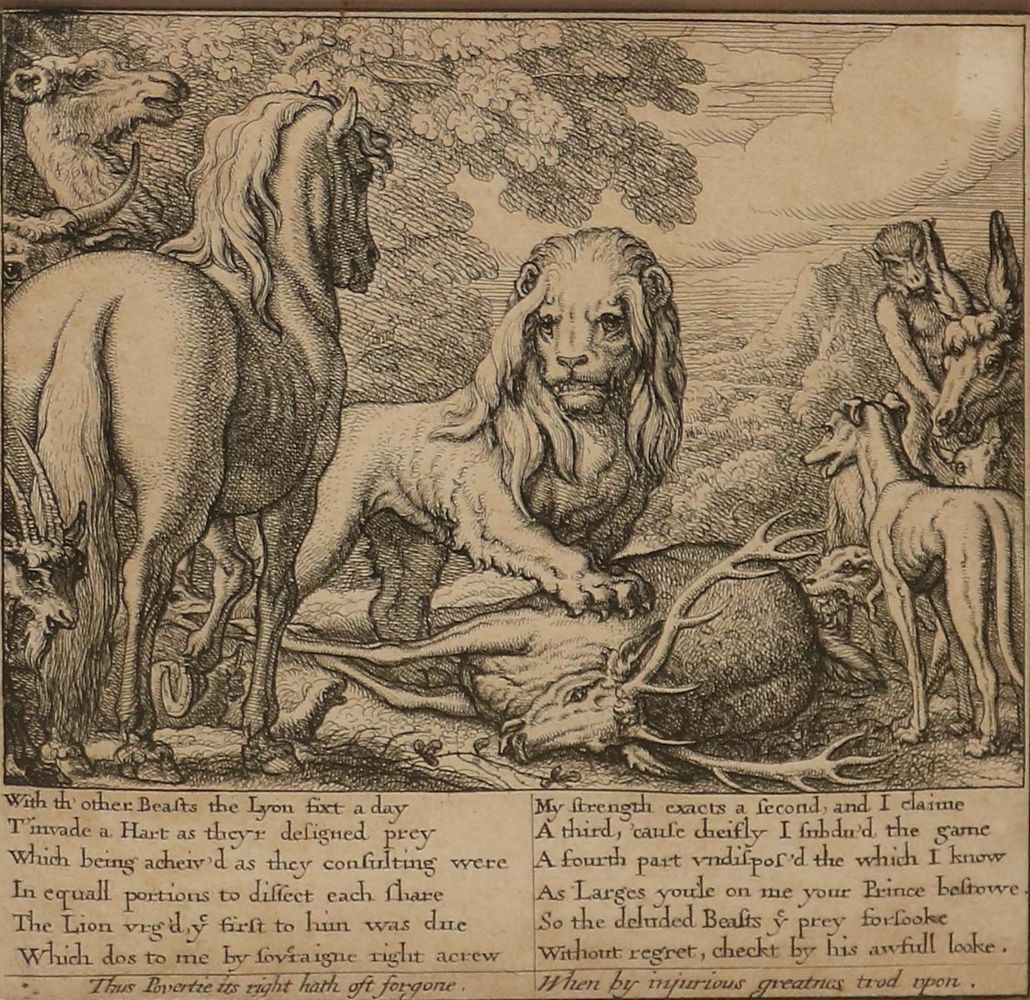 With th' other Beasts the Lyon fixt a day
T'invade a Hart as theyr designed prey
Which being acheiv'd as they consulting were
In equall portions to dissect each share
The Lion vrg'd, yᵉ first to him was due
Which dos to me by sovʳaigne right acrew
My strength exacts a second, and I claime
A third, 'cause cheifly I subdu'd the game
A fourth part vndispos'd the which I know
As Larges youle on me your Prince bestowe.
So the deluded Beasts yᵉ prey forsooke
Without regret, checkt by his awfull looke.
Thus Povertie its right hath oft forgone.
When by injurious greatnes trod vpon.